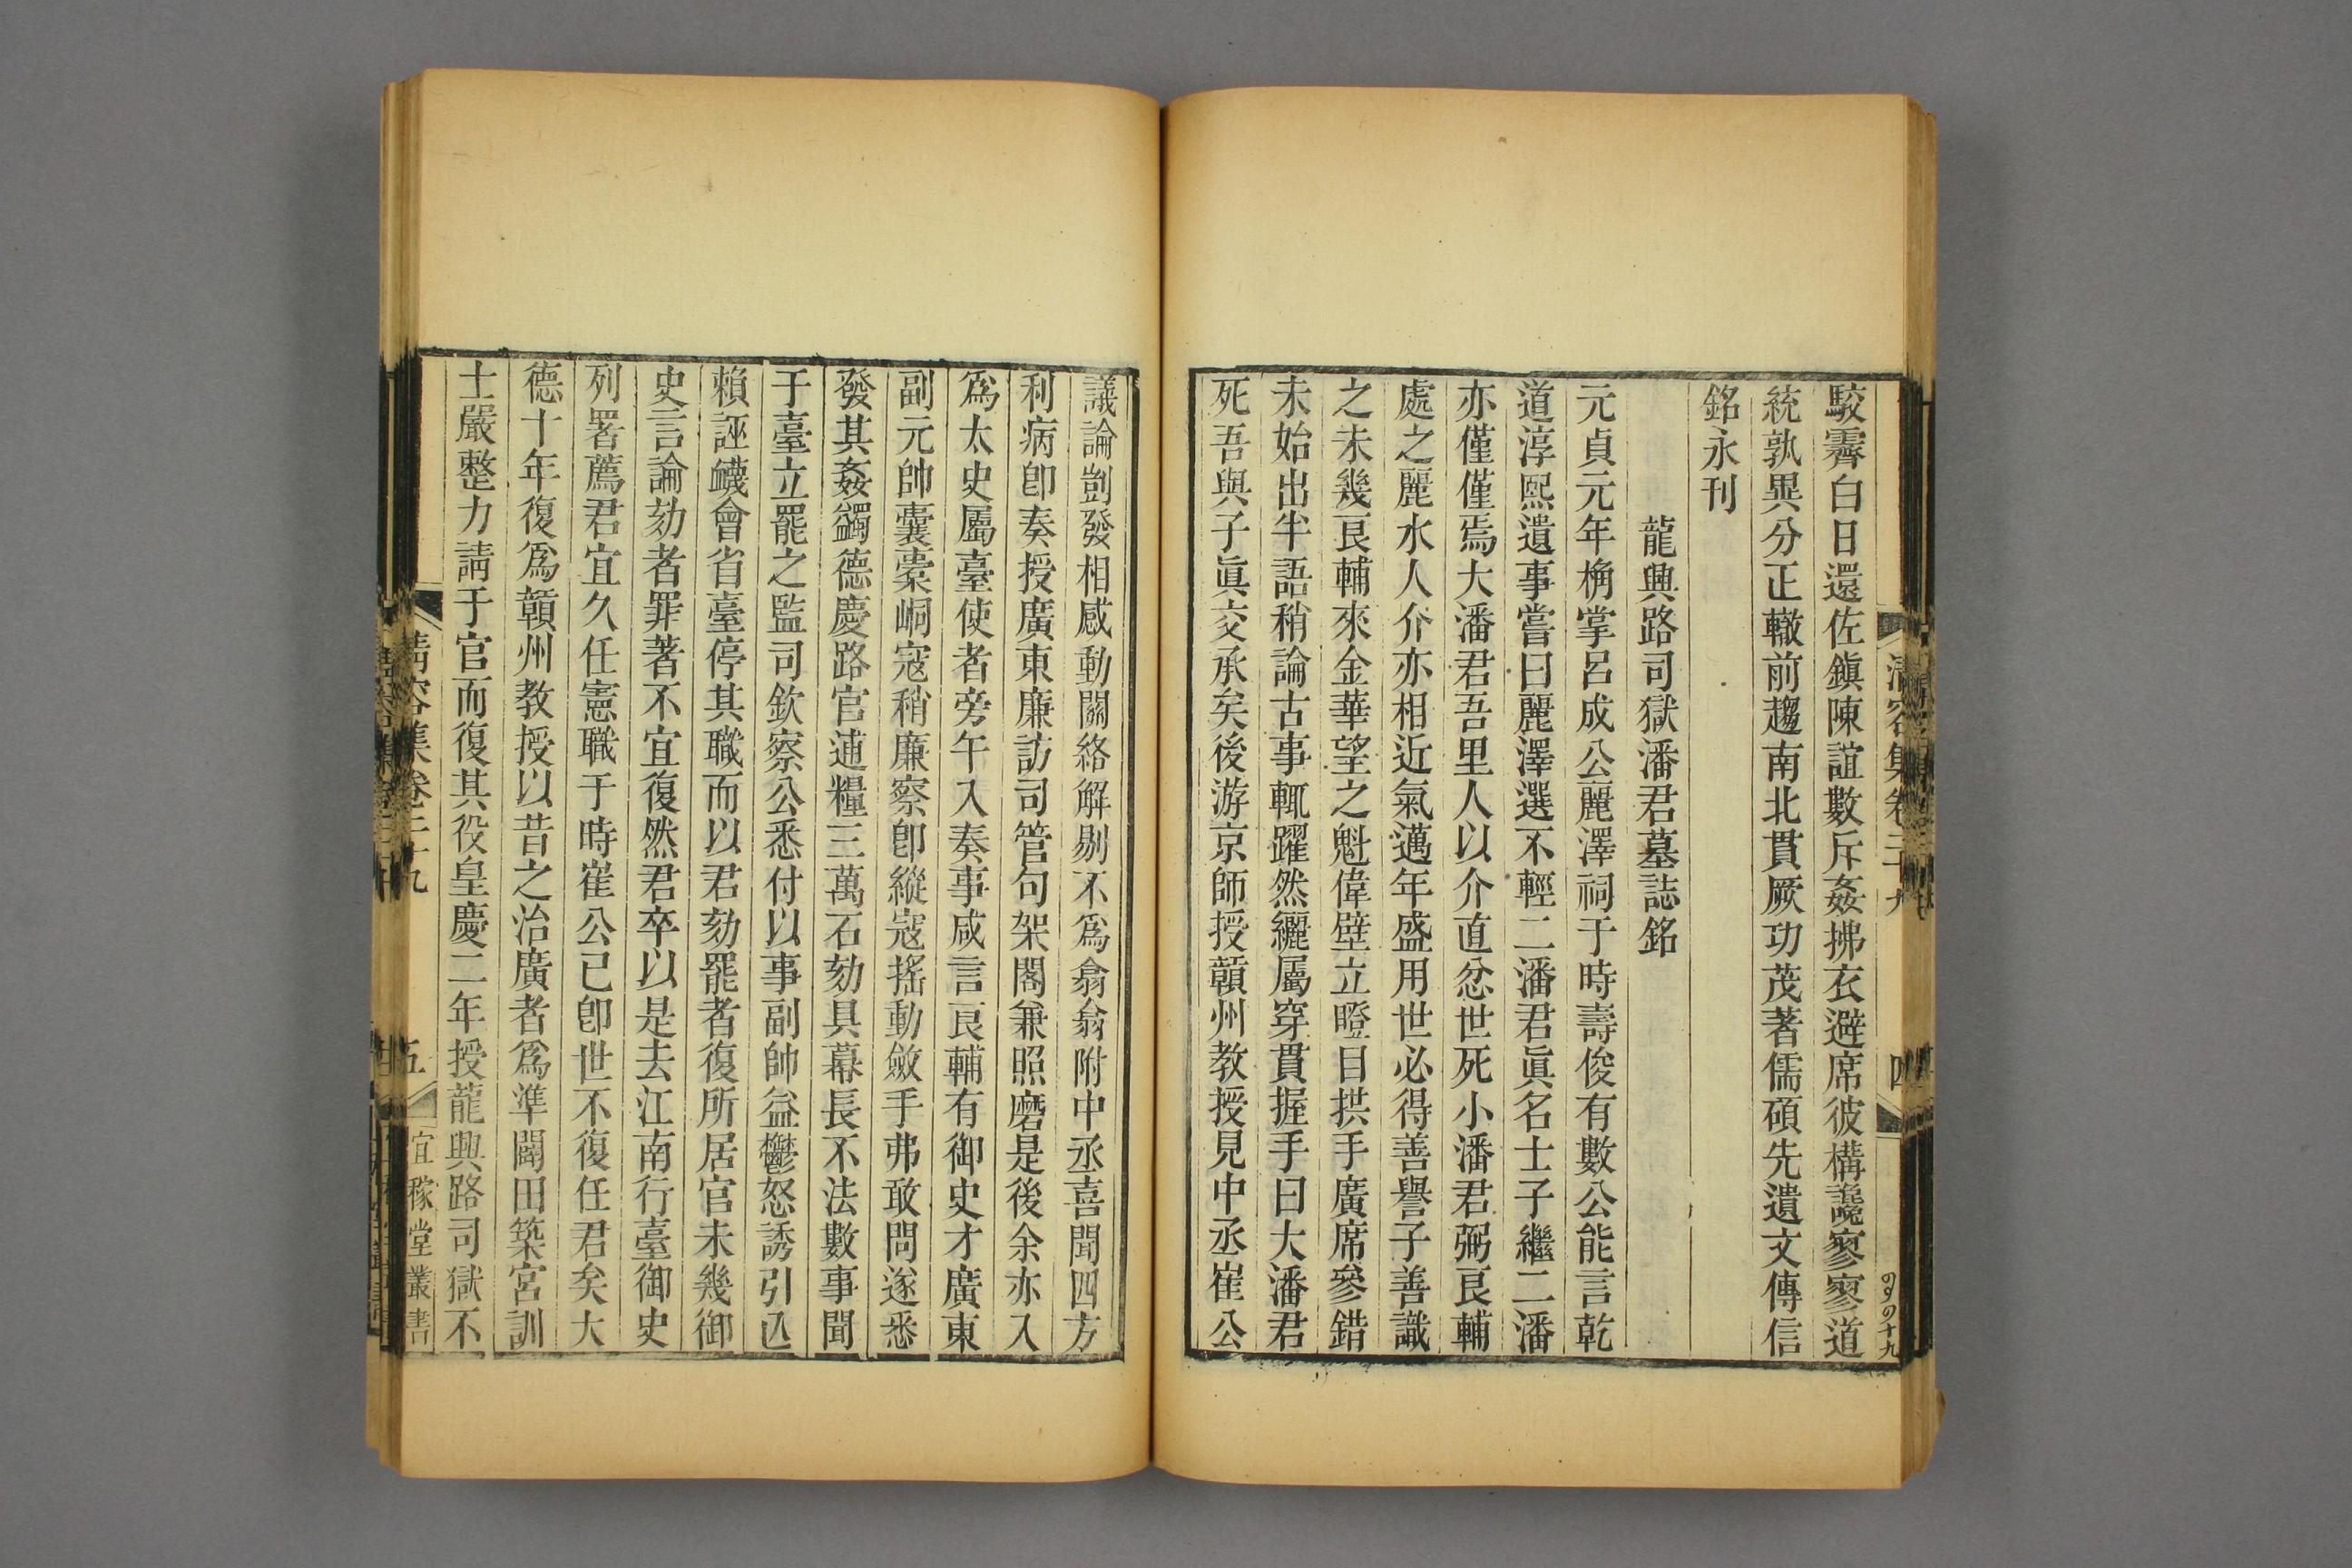 清容集卷二十九
四
駮霽白日還佐鎮陳誼數斥姦拂衣避席彼構讒寥寥道
統孰異分正轍前趨南北貫厥功茂著儒碩先遺文傳信
銘永刊
龍興路司獄潘君墓誌銘
元貞元年桷掌呂成公麗澤祠于時壽俊有數公能言乾
道淳熙遺事嘗曰麗澤選不輕二潘君眞名士子繼二潘
亦僅僅焉大潘君吾里人以介直忿世死小潘君弼良輔
處之麗水人介亦相近氣邁年盛用世必得善譽子善識
之未幾良輔來金華望之魁偉壁立瞪目拱手廣席參錯
未始出半語稍論古事輒躍然纚屬穿貫握手曰大潘君
死吾與子眞交承矣後游京師授贛州教授見中丞崔公
議論剴發相感動關絡解剔不爲翕翕附中丞喜聞四方
利病卽奏授廣東廉訪司管句架閣兼照磨是後余亦入
爲太史屬臺使者旁午入奏事咸言良輔有御史才廣東
副元帥囊橐峒寇稍廉察卽縱寇搖動斂手弗敢問遂悉
發其姦蠲德慶路官逋糧三萬石劾具幕長不法數事聞
于臺立罷之監司欽察公悉付以事副帥益鬱怒誘引匹
賴誣衊會省臺停其職而以君劾罷者復所居官未幾御
史言論劾者罪著不宜復然君卒以是去江南行臺御史
列署薦君宜久任憲職于時崔公已卽世不復任君矣大
德十年復爲贛州教授以昔之治廣者爲準闢田築宮訓
士嚴整力請于官而復其役皇慶二年授龍興路司獄不
清容集卷二十九
五
宜稼堂叢書